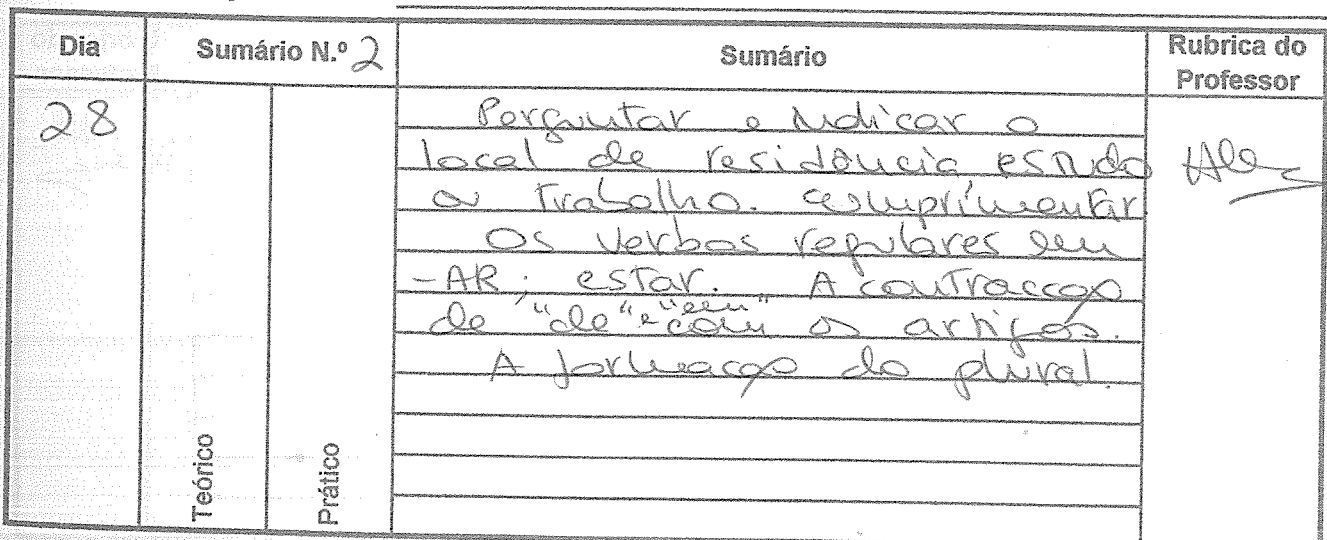 Dia
Sumário N.º 2
Sumário
Rubrica do
Professor
28
Perguntar e indicar o
local de residência estudo
ou trabalho. cumprimentar
Os verbos regulares em
-AR; estar. A contracção
de "de" e "em" com os artigos.
A formação do plural.
Teórico
Prático